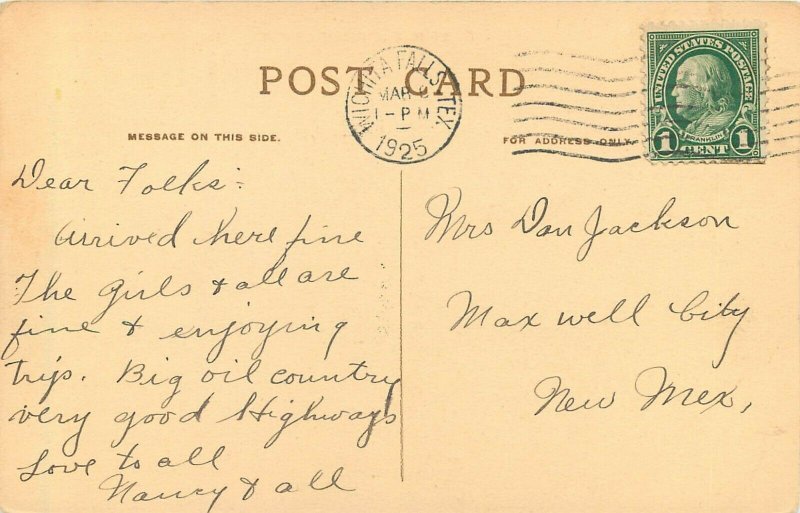 POST CARD
WICHITA FALLS, TEX.
MAR
1-PM
1925
UNITED STATES POSTAGE
FRANKLIN
1 CENT 1
MESSAGE ON THIS SIDE.
FOR ADDRESS ONLY.
Dear Folks:
Arrived here fine
The girls & all are
fine & enjoying
trip. Big oil country
very good Highways
Love to all
& all
Mrs Dan Jackson
Maxwell City
New Mex,